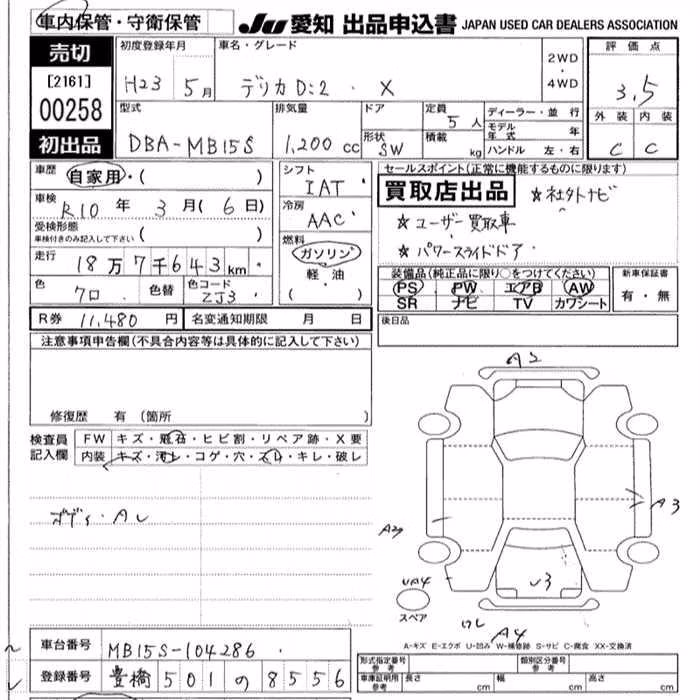 車内保管・守衛保管
JU 愛知 出品申込書 JAPAN USED CAR DEALERS ASSOCIATION
売切
[2161]
00258
初出品
初度登録年月
H23 5月
車名・グレード
デリカD:2 ・ X
2WD
・
4WD
評価点
3.5
外装 内装
C C
型式
DBA-MB15S
排気量
1,200 cc
ドア
形状
SW
定員
5人
積載
kg
ディーラー・並行
モデル年式 年
ハンドル 左・右
車歴
自家用・( )
車検
R10年 3月(6日)
受検形態
車検付きのみ記入して下さい ( )
走行
18万7千643km
色
クロ
色替
色コード
ZJ3
シフト
IAT
冷房
AAC
燃料
ガソリン
軽油
( ・ )
セールスポイント(正常に機能するものに限ります)
買取店出品
☆社外ナビ
☆ユーザー買取車
☆パワースライドドア
装備品(純正品に限り○をつけてください)
PS PW エアB AW
SR ナビ TV カワシート
新車保証書
有・無
R券 11,480円
名変通知期限 月 日
後日品
注意事項申告欄(不具合内容等は具体的に記入して下さい)
修復歴 有 (箇所 )
検査員
記入欄
FW キズ・飛石・ヒビ割・リペア跡・X要
内装 キズ・汚レ・コゲ・穴・スレ・キレ・破レ
ボディ・Aレ
A2
A3
UA4
U3
スペア
ワレ
A4
A-キズ E-エクボ U-凹み W-補修跡 S-サビ C-腐食 XX-交換済
車台番号 MB15S-104286
登録番号 豊橋 501 の 8556
型式指定番号
参考
類別区分番号
参考
車庫証明用
参考
長さ cm 幅 cm 高さ cm